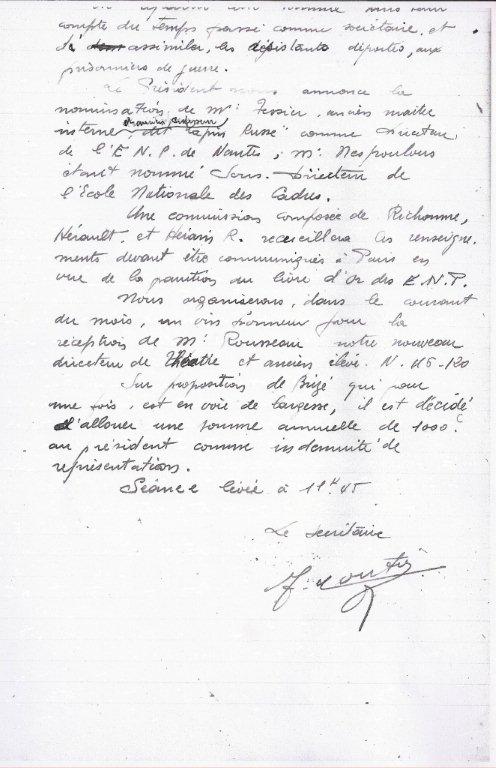 compte du temps passé comme sociétaire, et
d'assimiler les déportés, aux
prisonniers de guerre.
Le Président nous annonce la
nomination de Mr Tessier, ancien maître
interne, dit "Lapin Russe" comme Directeur
de l'E.N.P. de Nantes; Mr Nespoulous
étant nommé Sous-Directeur de
l'Ecole Nationale des Cadres.
Une commission composée de Richomme,
Hérault, et R. recueillera les renseigne-
ments devant être communiqués à Paris en
vue de la parution du livre d'or des E.N.P.
Nous organiserons, dans le courant
du mois, un vin d'honneur pour la
réception de Mr Rousseau notre nouveau
directeur de Théâtre et ancien élève. N. 115-120
Sur proposition de Brizé qui pour
une fois, est en voie de largesse, il est décidé
d'allouer une somme annuelle de 1000
au président comme indemnité de
représentation.
Séance levée à 11h 45
Le secrétaire